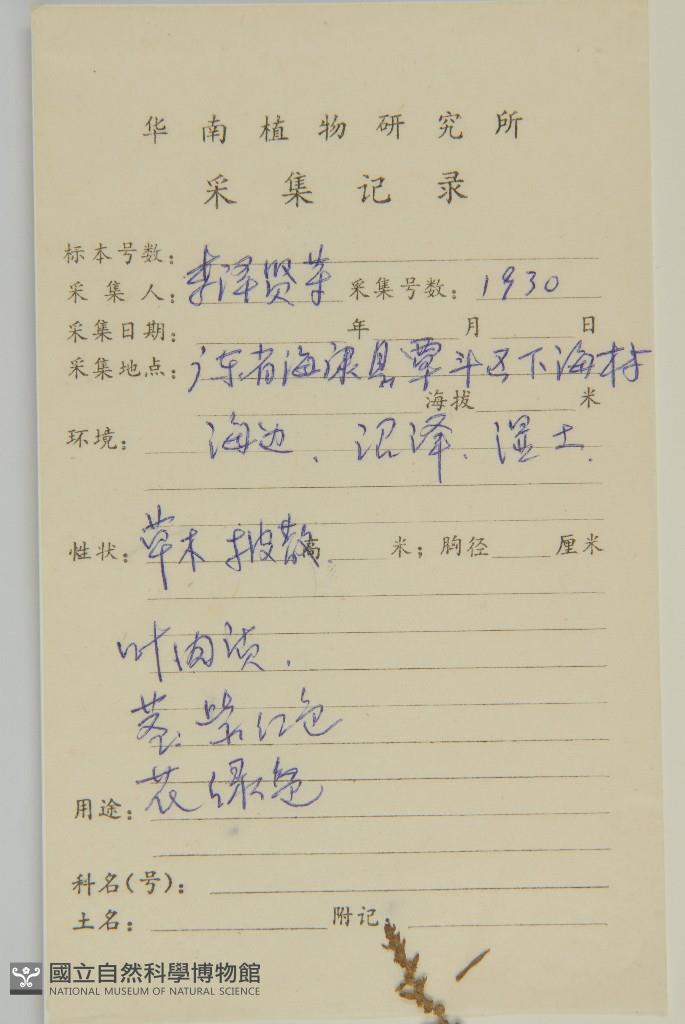 华南植物研究所
采集记录
标本号数：
采集人：李泽贤等 采集号数：1930
采集日期： 年 月 日
采集地点：广东省海康县覃斗区下海村
海拔 米
环境： 海边、沼泽、湿土.
性状：草本 披散. 高 米；胸径 厘米
叶肉质.
茎紫红色
花绿色
用途：
科名(号)：
土名： 附记：
國立自然科學博物館
NATIONAL MUSEUM OF NATURAL SCIENCE